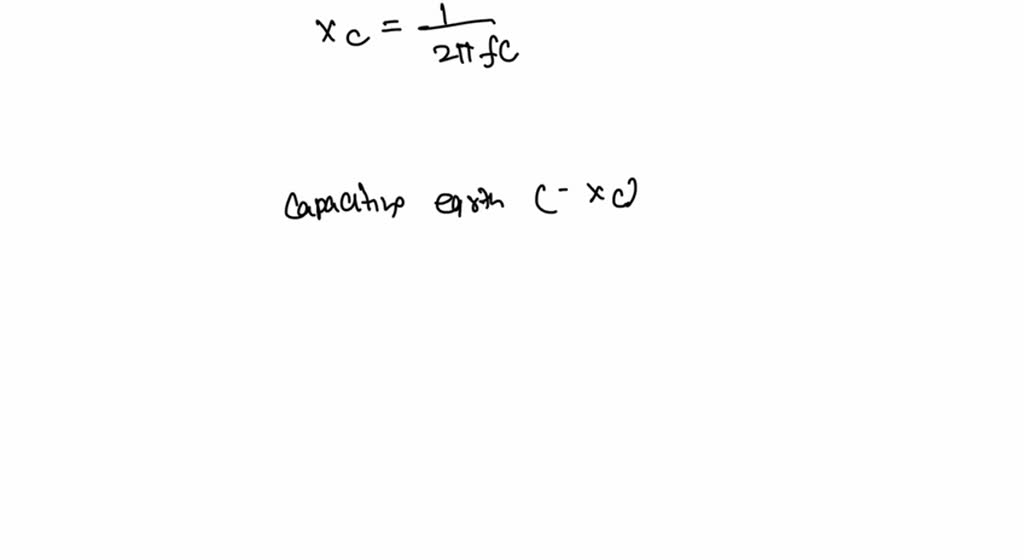 xc = 1/2πfC
Capacitive earth (- xc)